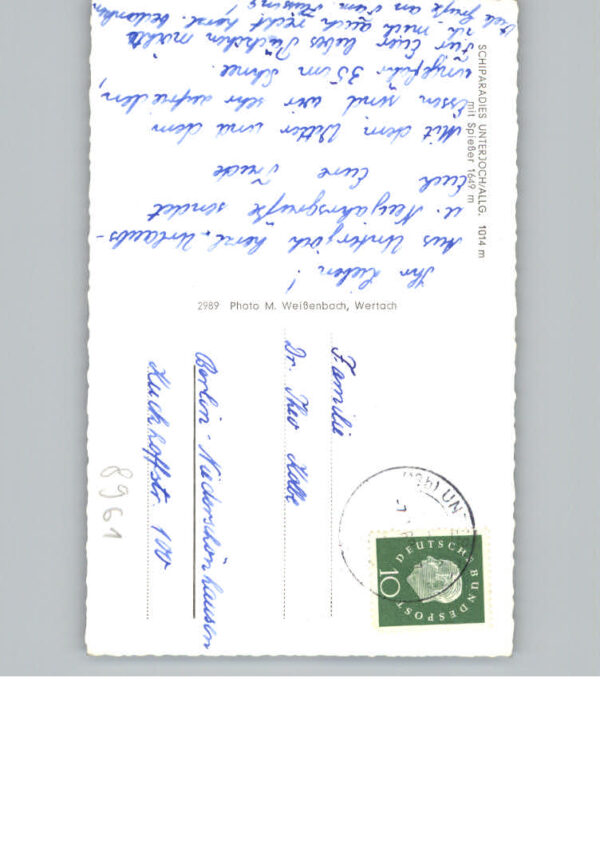 SCHIPARADIES UNTERJOCH/ALLG. 1014 m
mit Spießer 1649 m
Ihr Lieben!
Aus Unterjoch herzl. Urlaubs-
u. Neujahrsgrüße sendet
Euch Eure Trude
Mit dem Wetter und dem
Essen sind wir sehr zufrieden,
ungefähr 35 cm Schnee.
Für Euer liebes Päckchen möchte
ich mich auch recht herzl. bedanken
Viele Grüße an Fam.
2989 Photo M. Weißenbach, Wertach
Familie
Dr. Theo Kolbe
Berlin-Niederschönhausen
Kuckhoffstr. 100
DEUTSCHE BUNDESPOST
10
8961